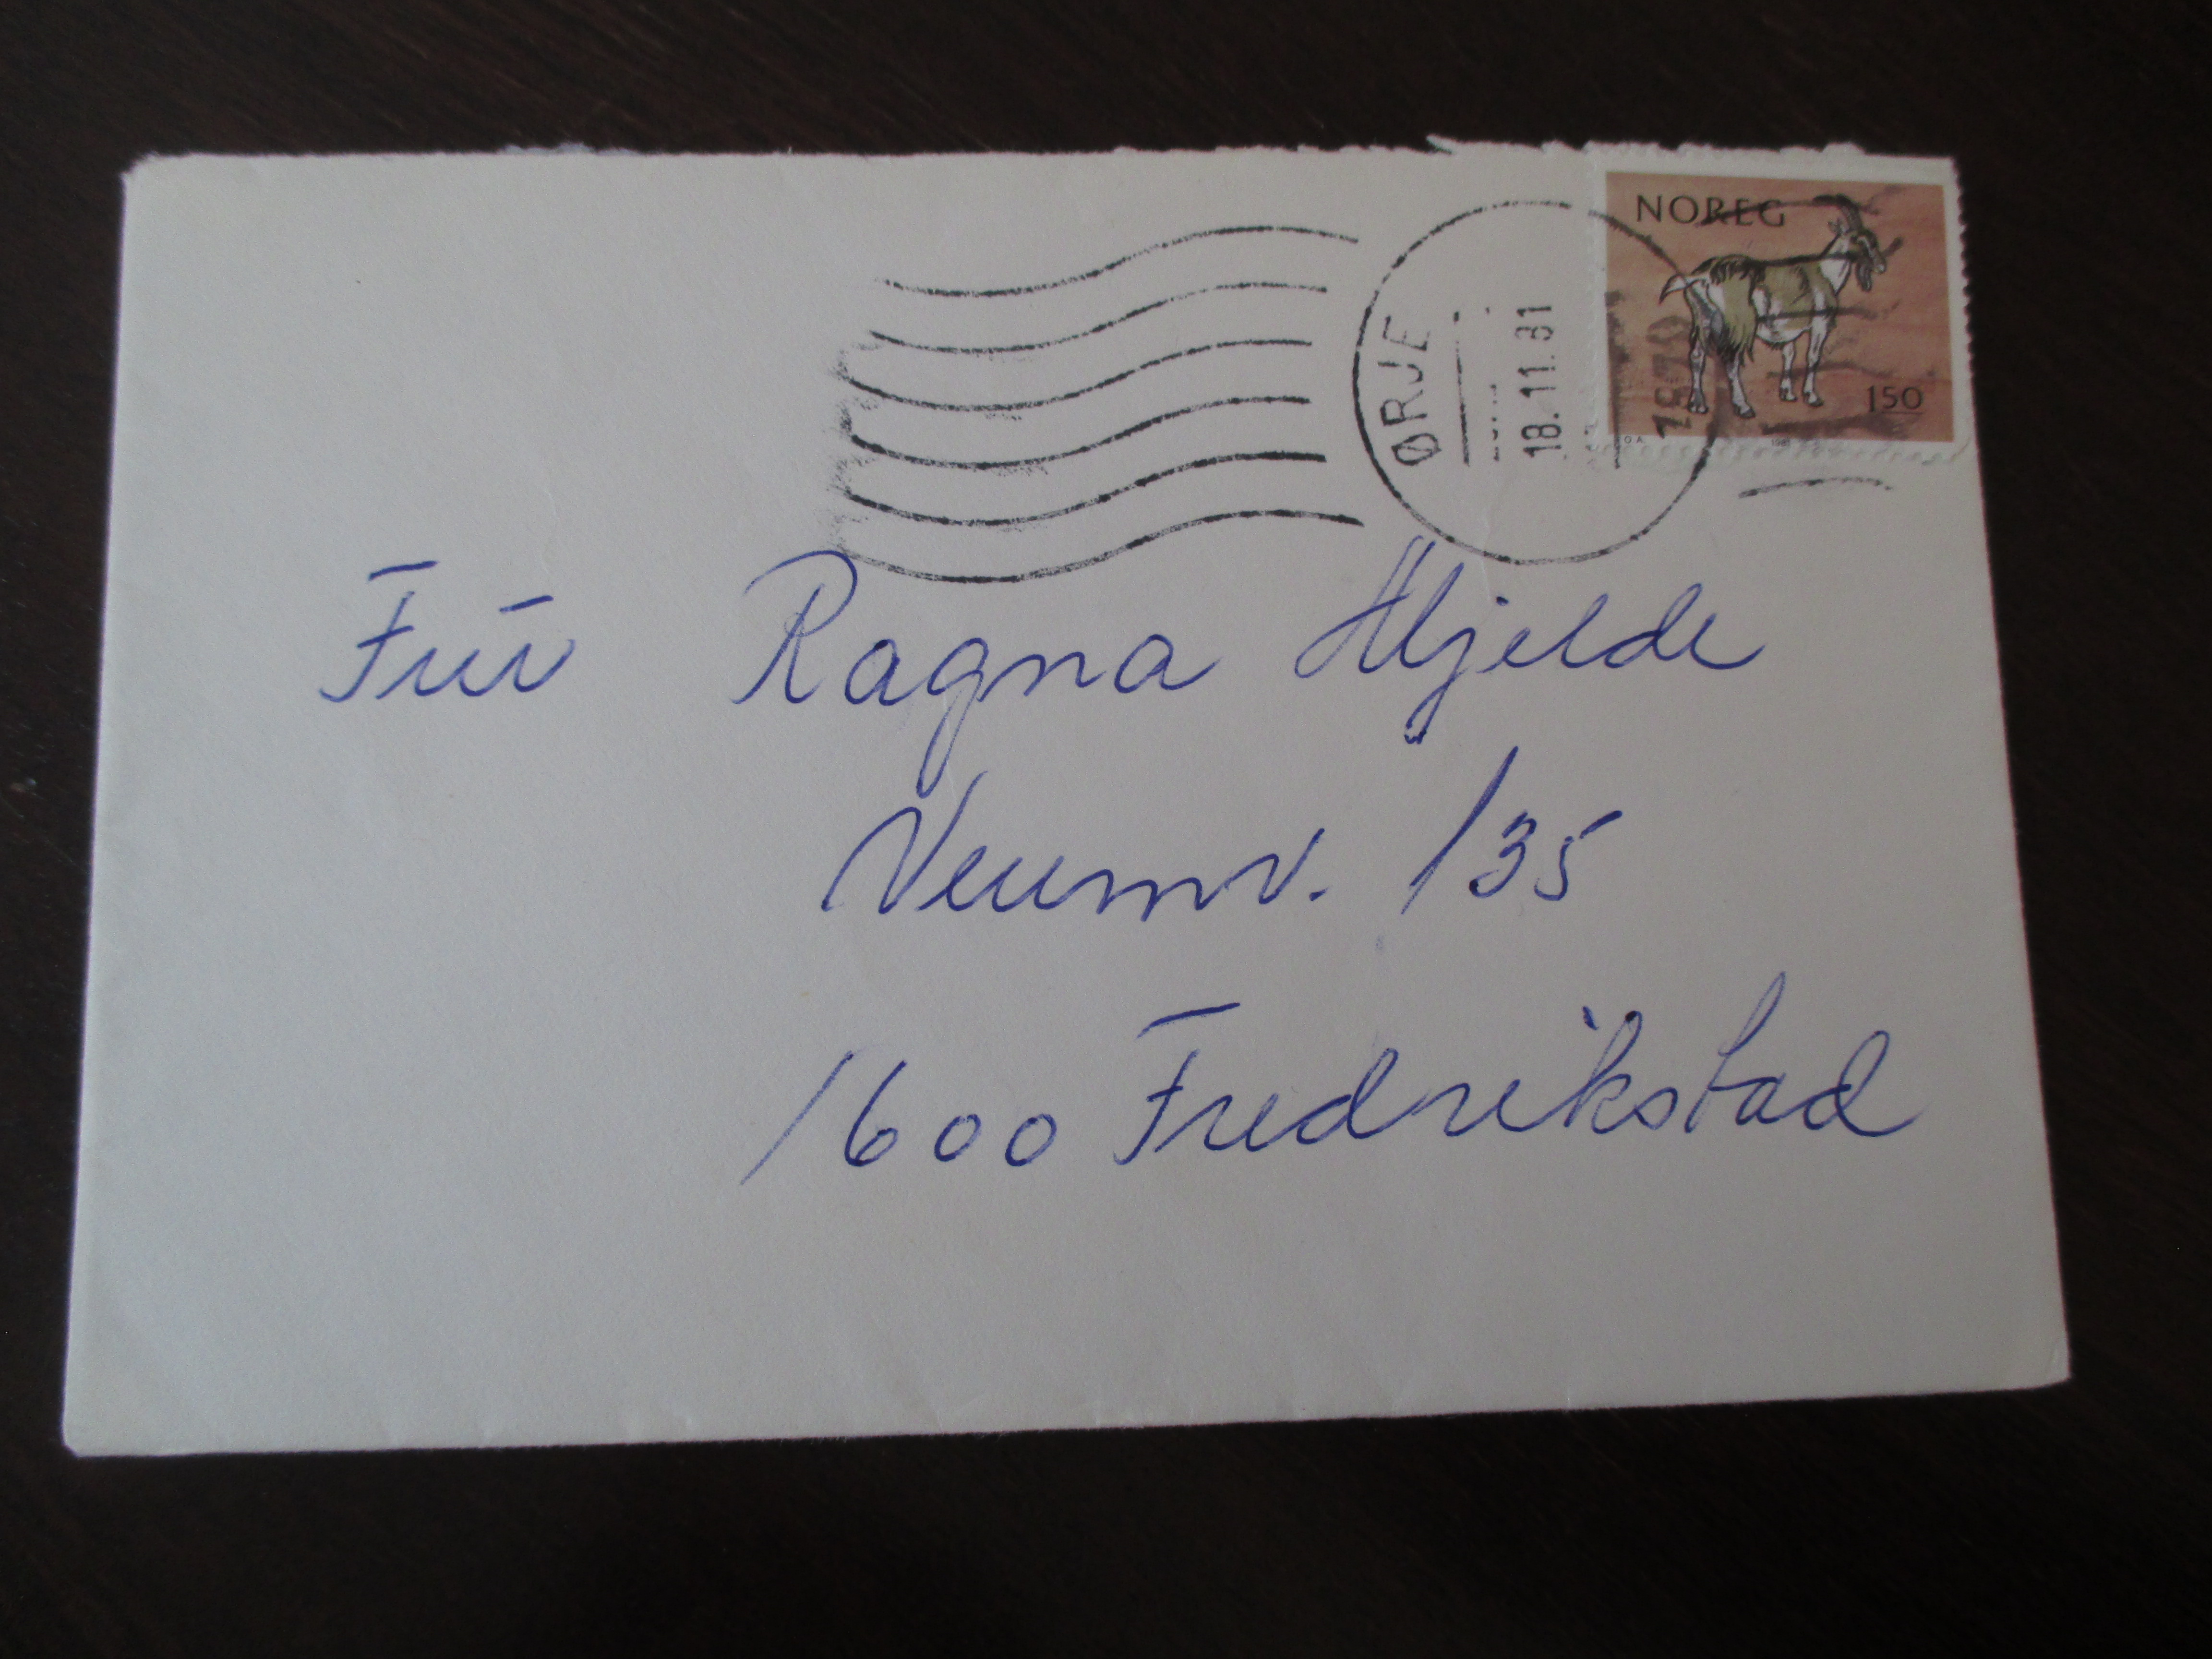 NOREG
150
ØRJE
18.11.81
1870
Frú Ragna Hjelde
Veumv. 135
1600 Fredrikstad